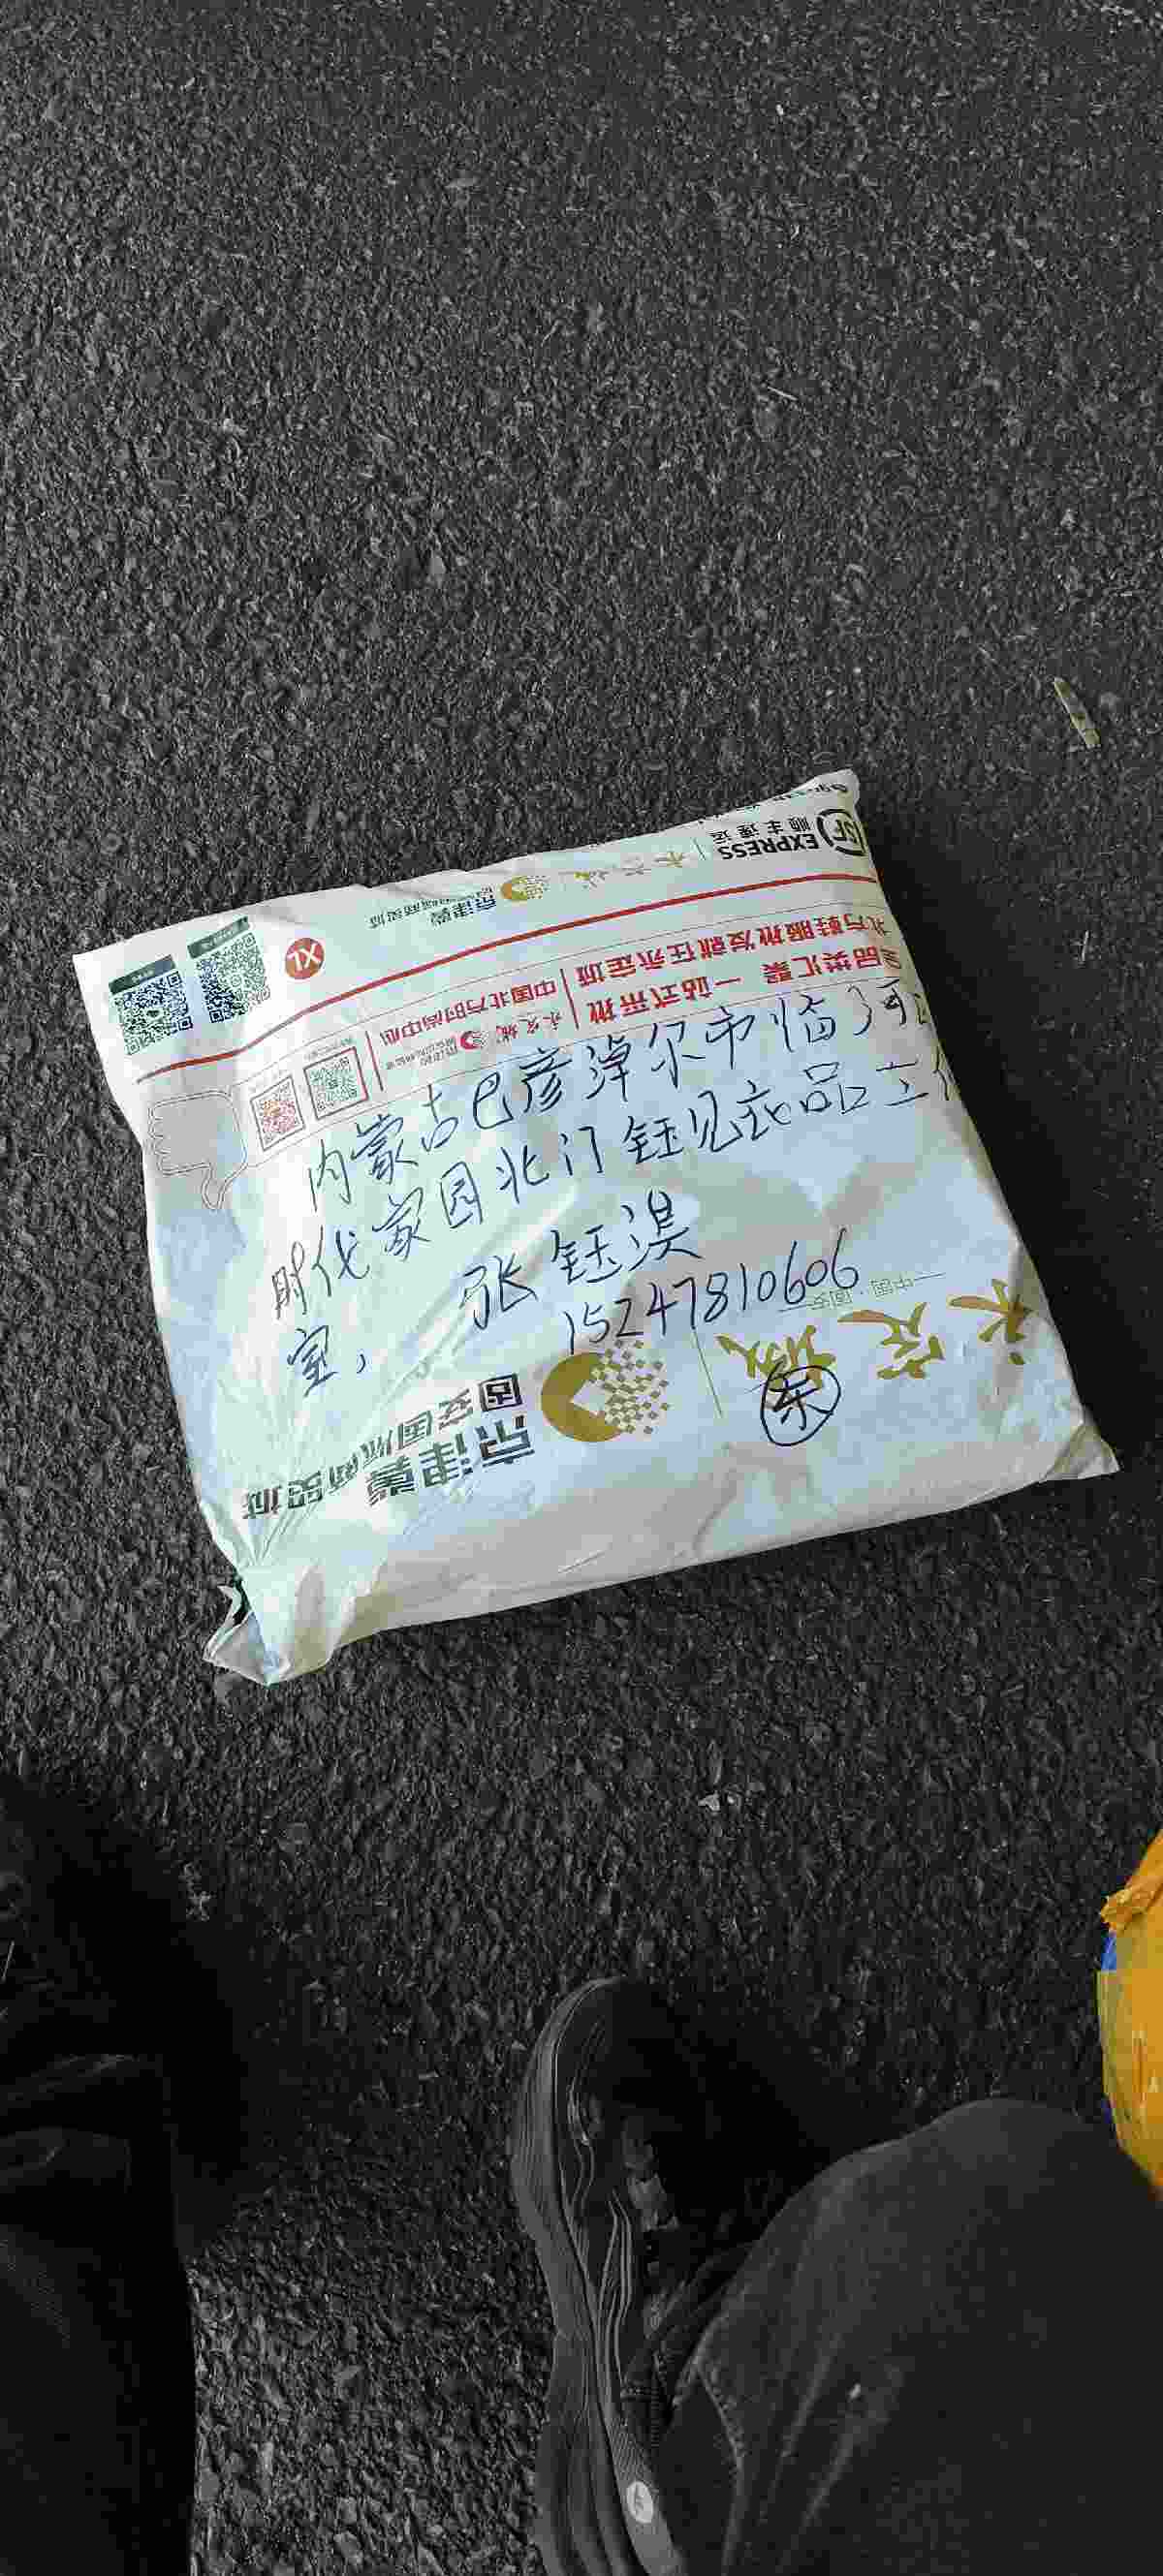 内蒙古巴彦淖尔市临河区
时代家园北门钰见衣品工作
室,
张钰淏
15247810606
东
SF
EXPRESS
顺丰速运
京津冀
永定城
XL
全品类汇聚 一站式采批
北方鞋服批发就在永定城
中国北方时尚中心
永定城
中国·固安
京津冀
固安国际商贸城